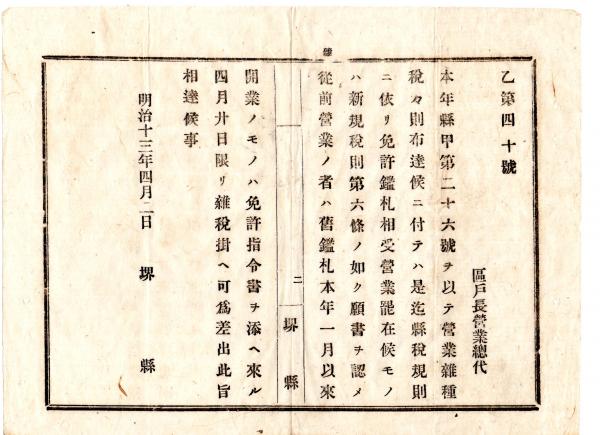 乙第四十號
區戸長營業總代
本年縣甲第二十六號ヲ以テ營業雜種
税々則布達候ニ付テハ是迄縣税規則
ニ依リ免許鑑札相受營業罷在候モノ
ハ新規税則第六條ノ如ク願書ヲ認メ
從前營業ノ者ハ舊鑑札本年一月以來
二
堺縣
開業ノモノハ免許指令書ヲ添ヘ來ル
四月廿日限リ雜税掛ヘ可爲差出此旨
相達候事
明治十三年四月二日 堺縣